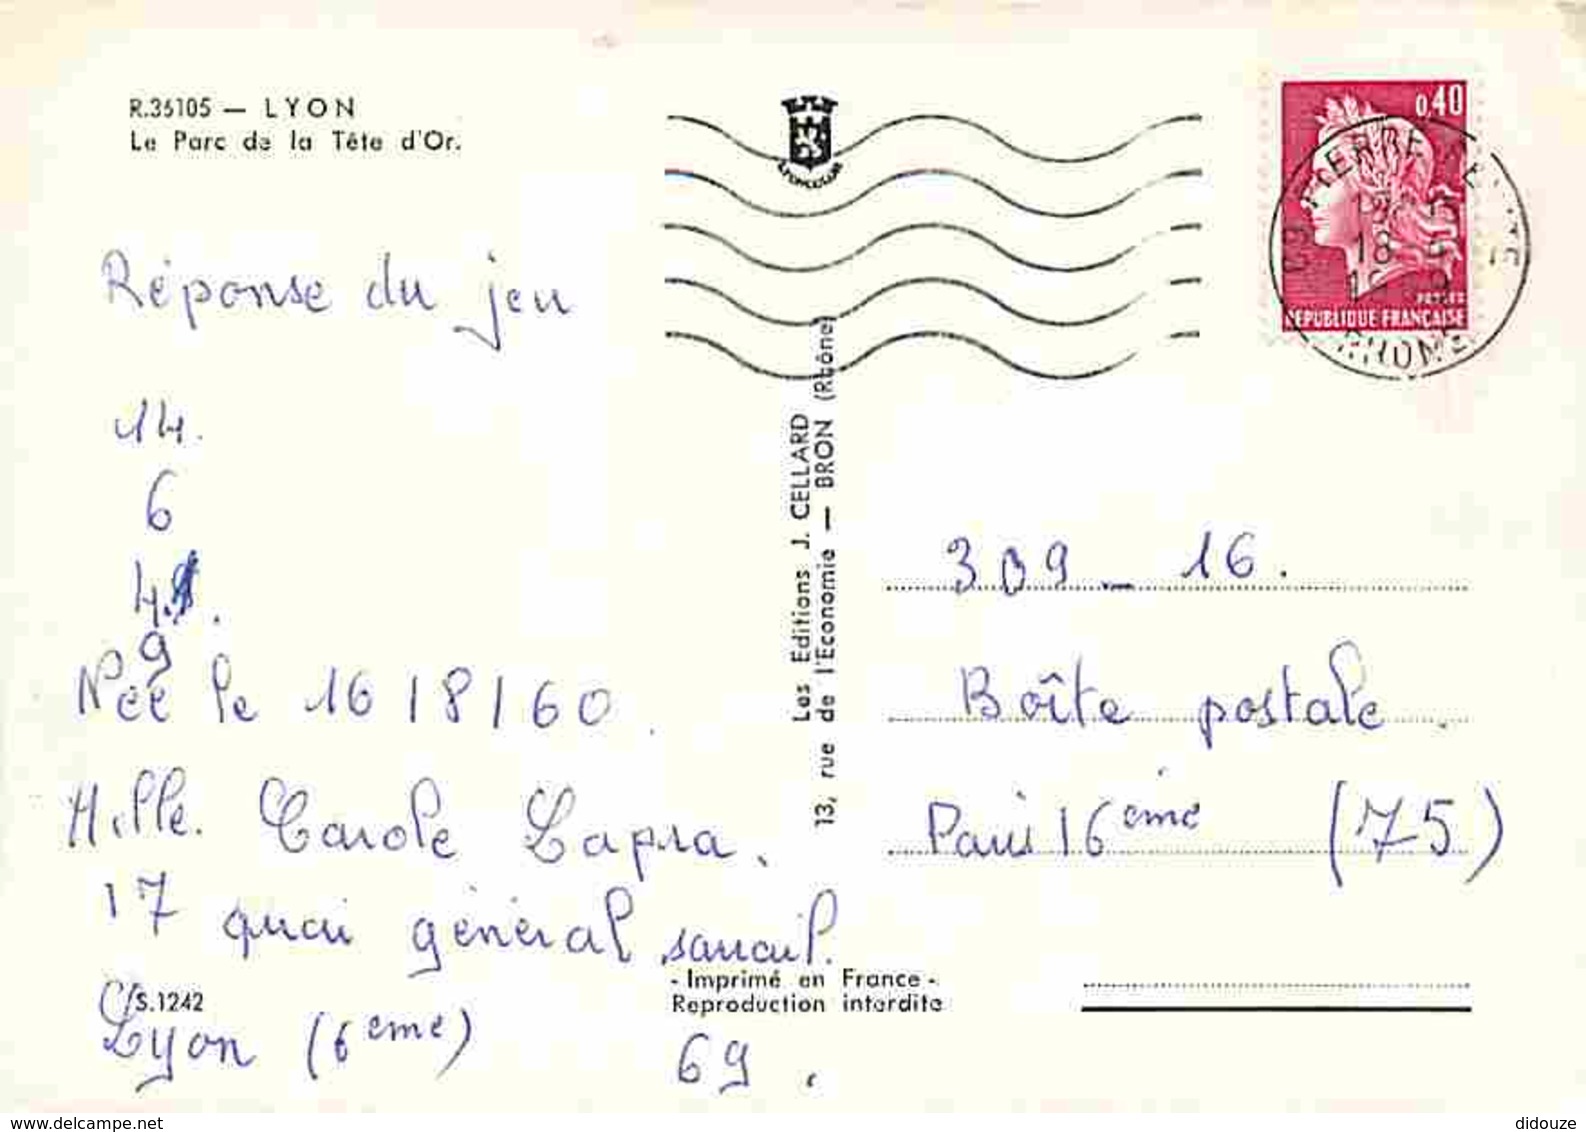 R.35105 — LYON
Le Parc de la Tête d'Or.
0,40
POSTES
REPUBLIQUE FRANÇAISE
69 PIERRE
18
RHONE
Réponse du jeu
14.
6
4.
9
Née le 16/8/60.
Mlle. Carole Lapra.
17 quai général sarrail.
Lyon (6eme) 69.
S.1242
Les Editions J. CELLARD
13, rue de l'Economie — BRON (Rhône)
309 - 16.
Boîte postale.
Paris 16eme (75)
- Imprimé en France -
Reproduction interdite
www.delcampe.net
didouze